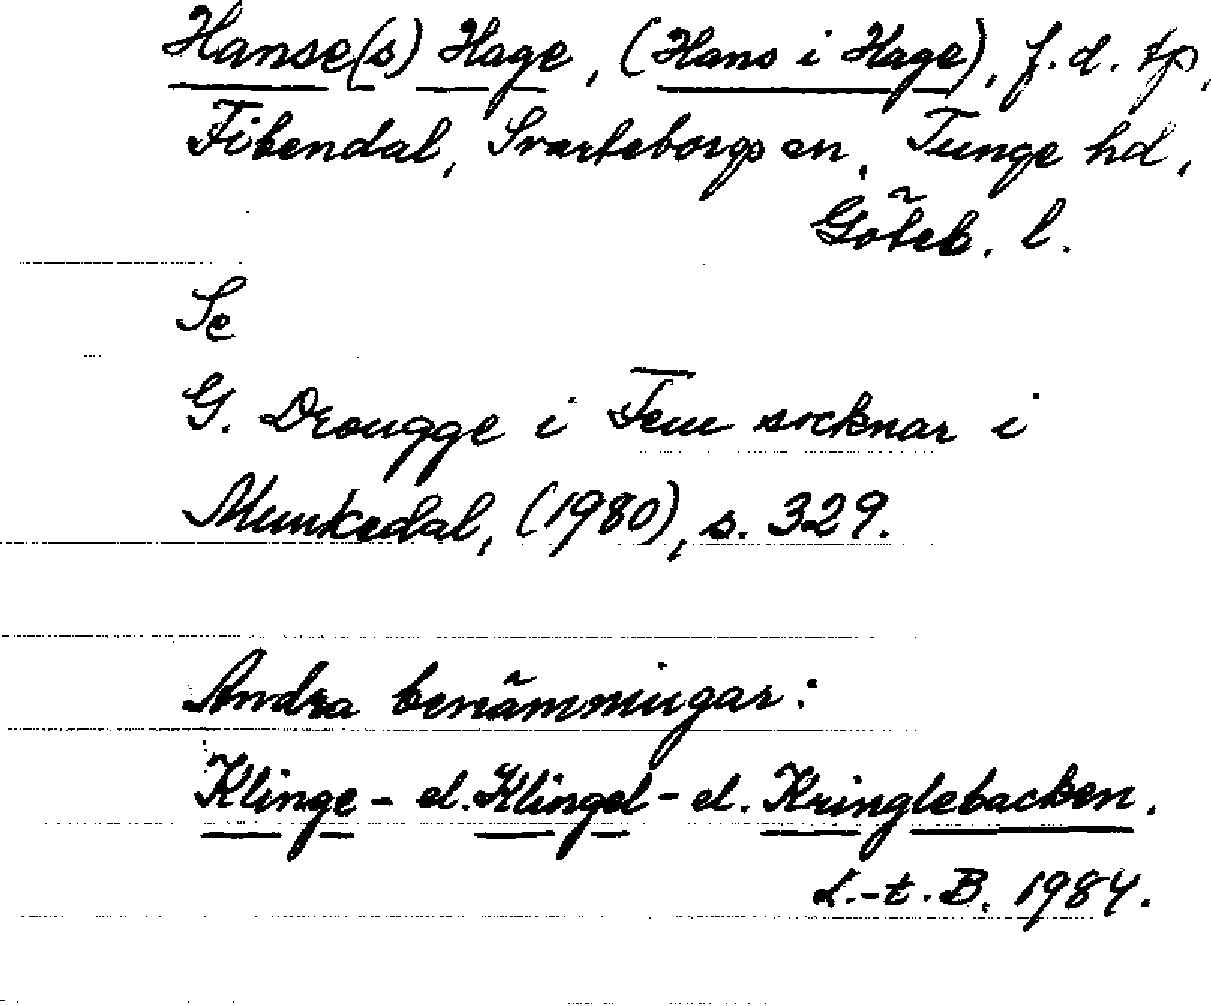 Hanse(s) Hage, (Hans i Hage), f.d. tp,
Fibendal, Svarteborgs sn, Tunge hd,
Göteb. l.
Se
G. Drougge i Fem socknar i
Munkedal, (1980), s. 329.
Andra benämningar:
Klinge- el. Klingel- el. Kringlebacken.
L.-t. B. 1984.